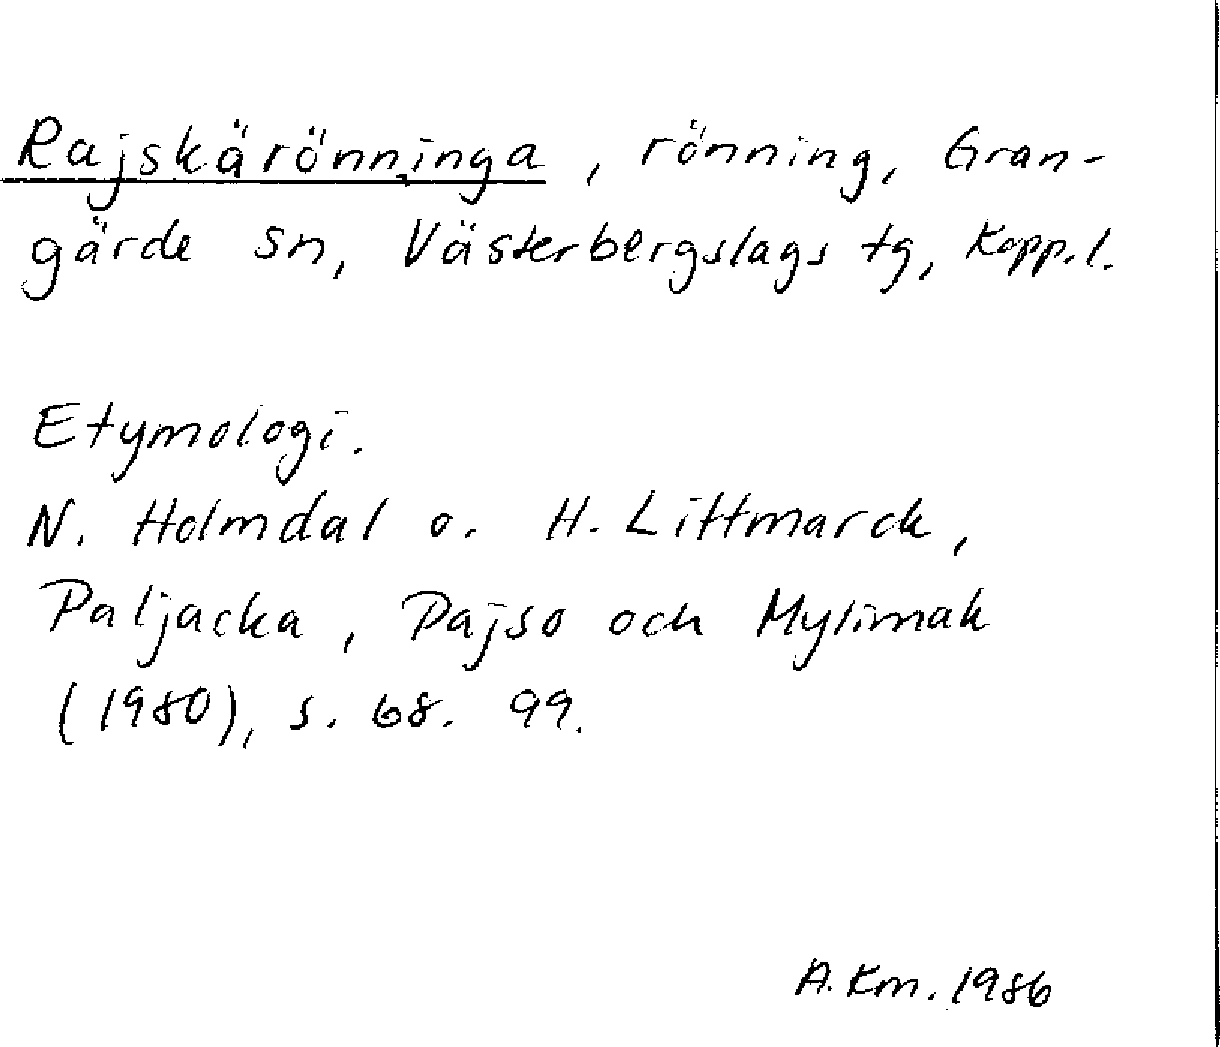 Rajskärönninga, rönning, Gran-
gärde sn, Västerbergslags tg, Kopp.l.
Etymologi.
N. Holmdal o. H. Littmarck,
Paljacka, Pajso och Mylimak
(1980), s. 68. 99.
A. Km. 1986